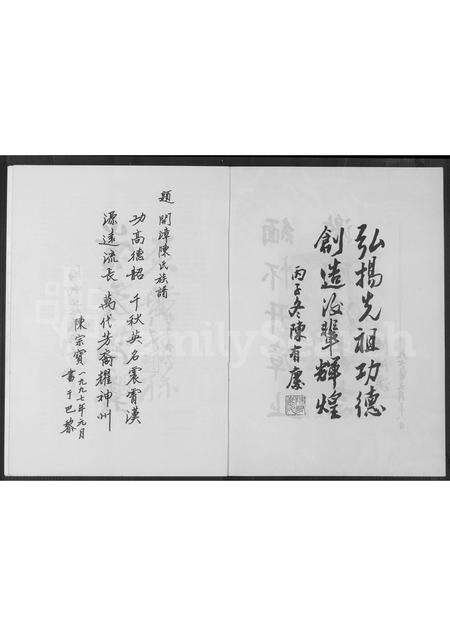 弘揚先祖功德
創造後輩輝煌
丙子冬陳有慶
題 開漳陳氏族譜
功高德韶 千秋英名震霄漢
源遠流長 萬代芳裔耀神州
陳宗寶 一九九七年元月
書于巴黎
FamilySearch